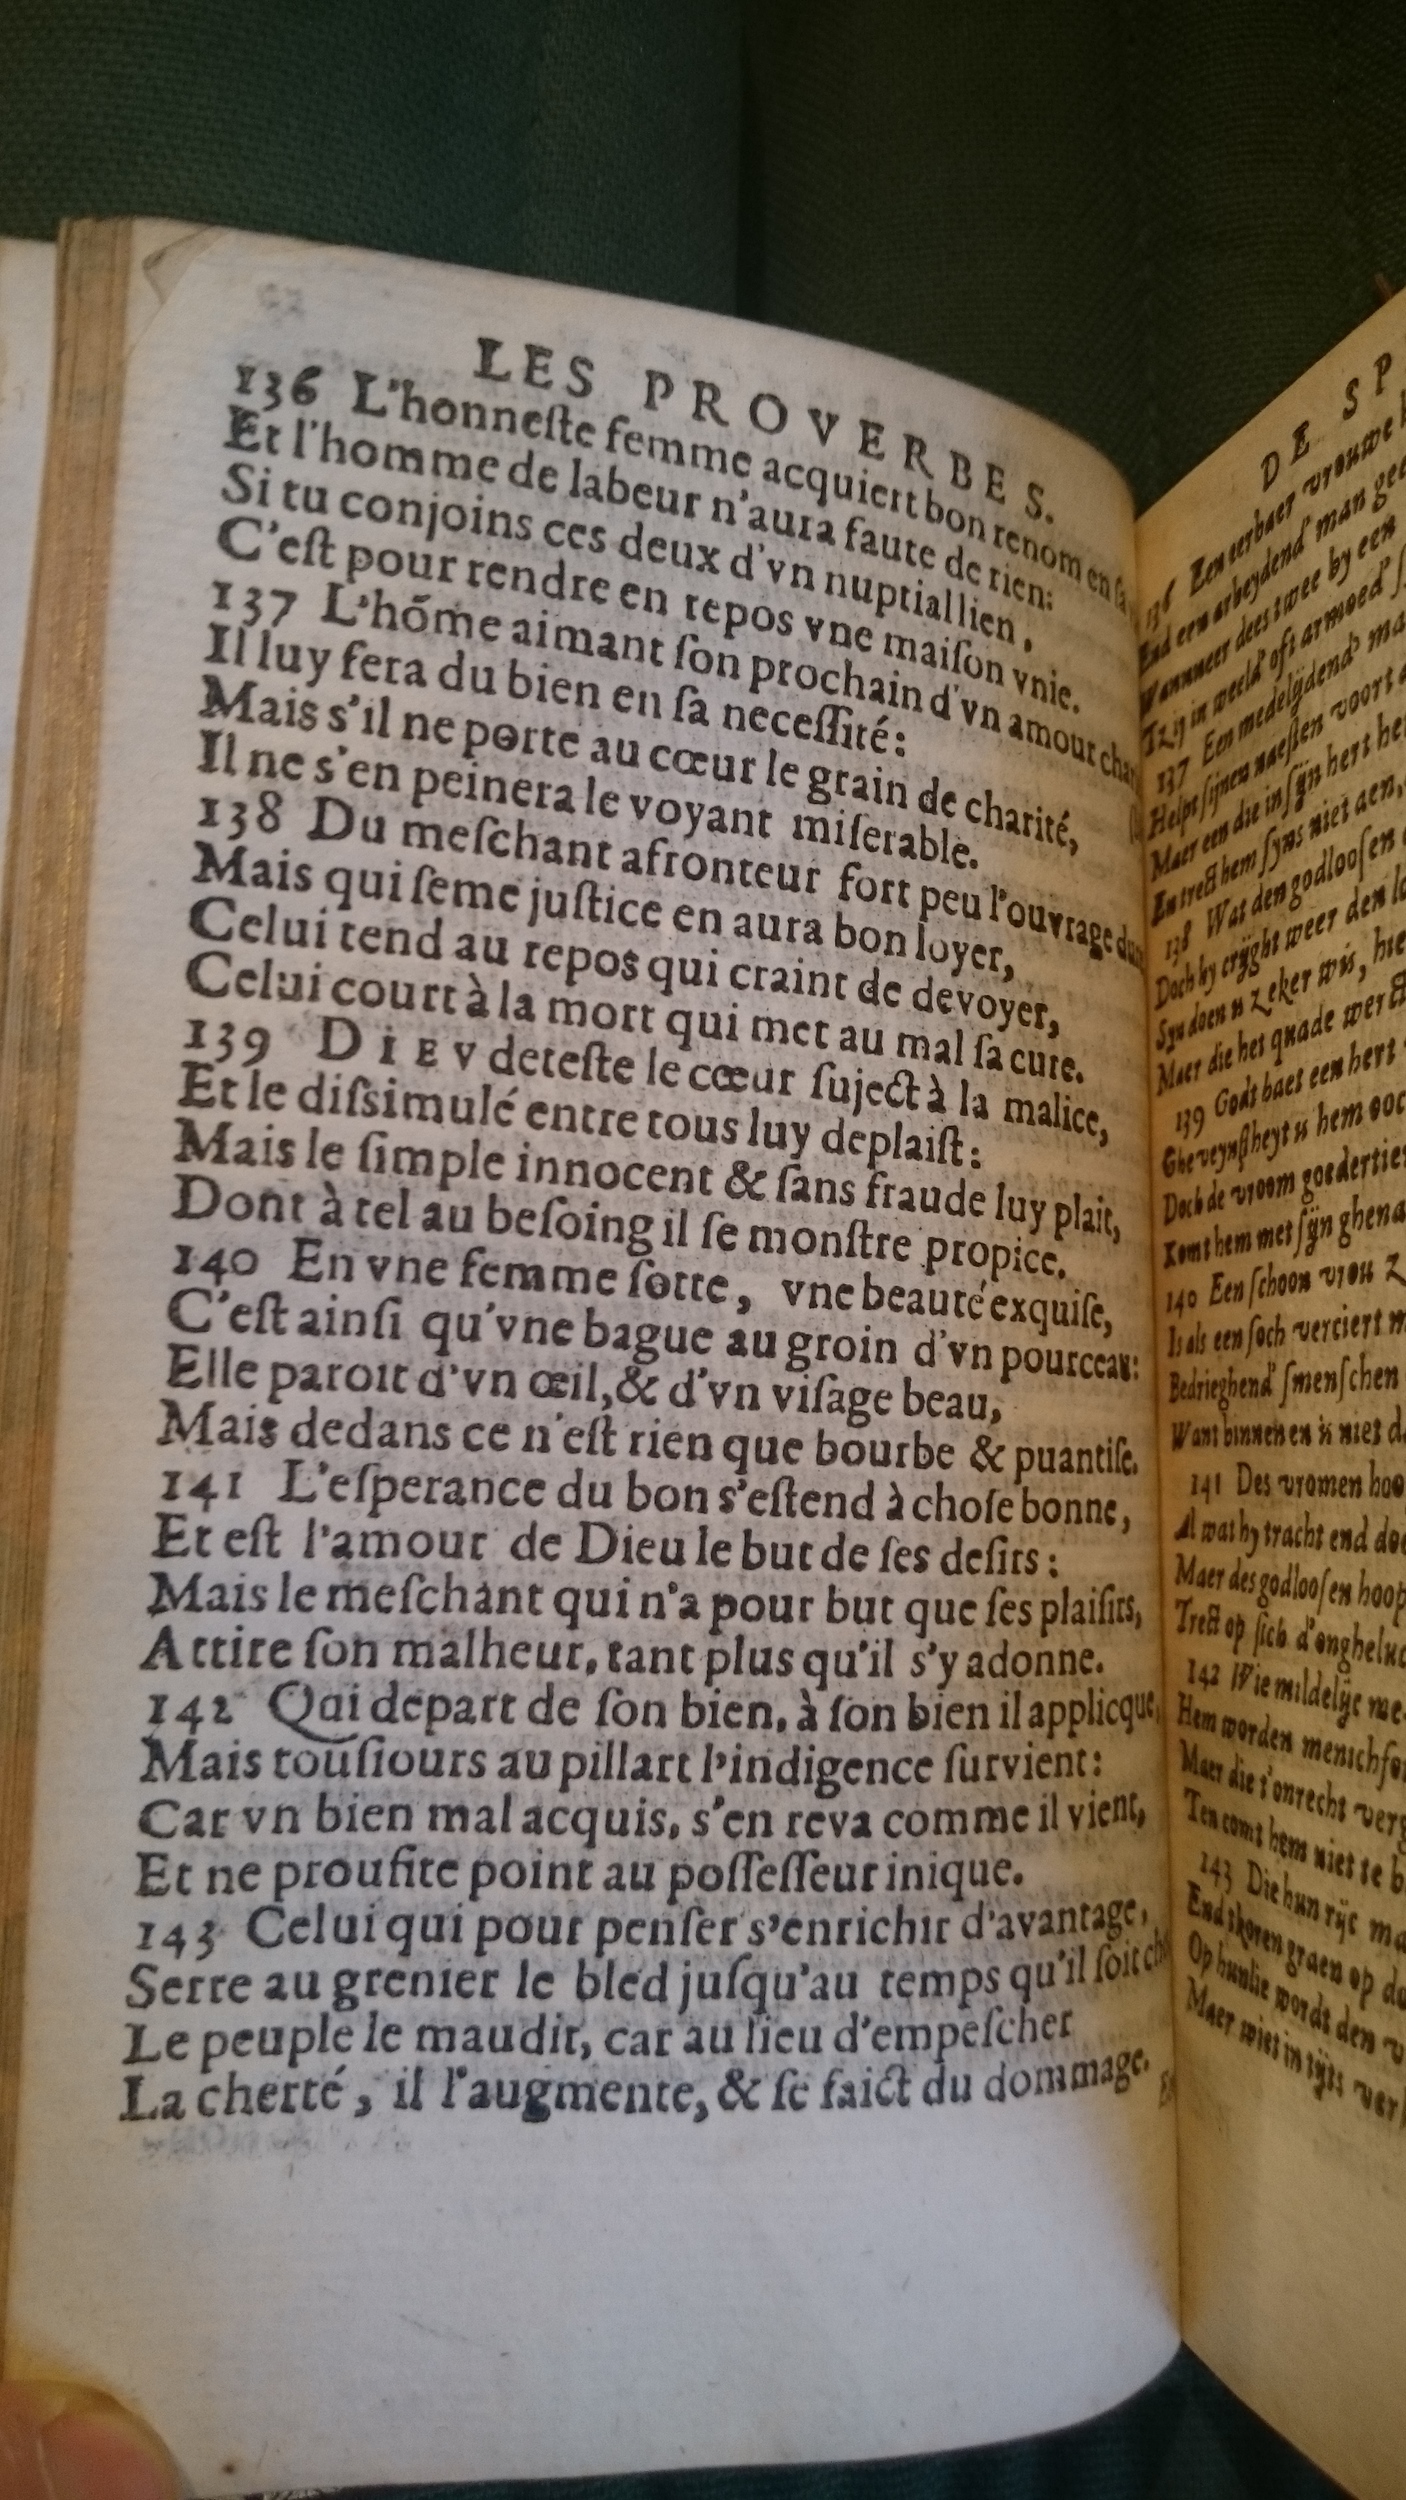 LES PROVERBES.
136 L'honneſte femme acquiert bon renom en ſa
Et l'homme de labeur n'aura faute de rien:
Si tu conjoins ces deux d'vn nuptial lien,
C'eſt pour rendre en repos vne maiſon vnie.
137 L'hõme aimant ſon prochain d'vn amour
Il luy fera du bien en ſa neceſſité:
Mais s'il ne porte au cœur le grain de charité,
Il ne s'en peinera le voyant miſerable.
138 Du meſchant afronteur fort peu l'ouvrage
Mais qui ſeme juſtice en aura bon loyer,
Celui tend au repos qui craint de devoyer,
Celui court à la mort qui met au mal ſa cure.
139 DIEV deteſte le cœur ſuject à la malice,
Et le diſsimulé entre tous luy deplaiſt:
Mais le ſimple innocent & ſans fraude luy plait,
Dont à tel au beſoing il ſe monſtre propice.
140 En vne femme ſotte, vne beauté exquiſe,
C'eſt ainſi qu'vne bague au groin d'vn pourceau:
Elle paroit d'vn œil, & d'vn viſage beau,
Mais dedans ce n'eſt rien que bourbe & puantiſe.
141 L'eſperance du bon s'eſtend à choſe bonne,
Et eſt l'amour de Dieu le but de ſes deſirs:
Mais le meſchant qui n'a pour but que ſes plaiſirs,
Attire ſon malheur, tant plus qu'il s'y adonne.
142 Qui depart de ſon bien, à ſon bien il applicque,
Mais touſiours au pillart l'indigence ſurvient:
Car vn bien mal acquis, s'en reva comme il vient,
Et ne proufite point au poſſeſſeur inique.
143 Celui qui pour penſer s'enrichir d'avantage,
Serre au grenier le bled juſqu'au temps qu'il ſoit
Le peuple le maudit, car au lieu d'empeſcher
La cherté, il l'augmente, & ſe faict du dommage.
DE SP
136 Een eerbaer vrouwe
End een arbeydend' man
Wanneer dees twee by een
Tzy in weeld' oft armoed'
137 Een medelijdend'
Helpt ſijnen naeſten voort
Maer een die in ſijn hert
En trect hem ſyns niet aen,
138 Wat den godlooſen
Doch hy crijght weer den
Syn doen is zeker wis,
Maer die het quade
139 Godt haet een hert
Gheveynſtheyt is hem ooc
Doch de vroom
Komt hem met ſijn
140 Een ſchoon vrou
Is als een ſoch verciert
Bedrieghend' ſmenſchen
Want binnen en is niet
141 Des vromen
Al wat hy tracht end
Maer des godlooſen
Trect op ſich
142 Wie mildelijc
Hem worden
Maer die t'onrecht
Ten comt hem niet te
143 Die hun rijc
End t'koren graen op
Op hunlie wordt den
Maer wiet in tijts